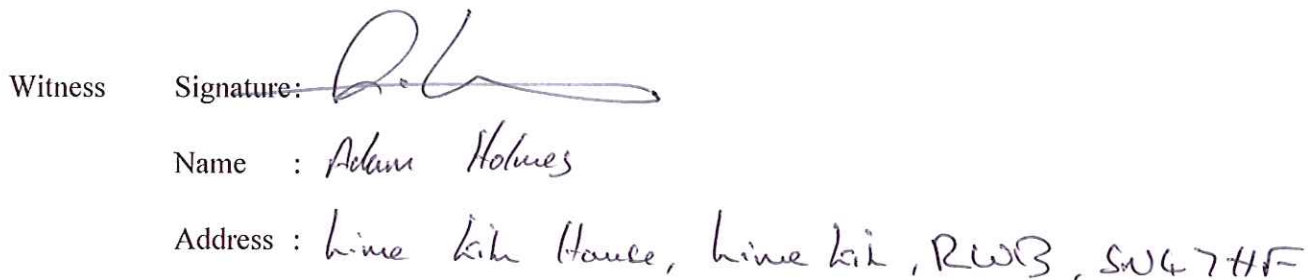 Witness Signature:
Name : Adam Holmes
Address : Lime Kiln House, Lime Kiln, RWB, SN4 7HF